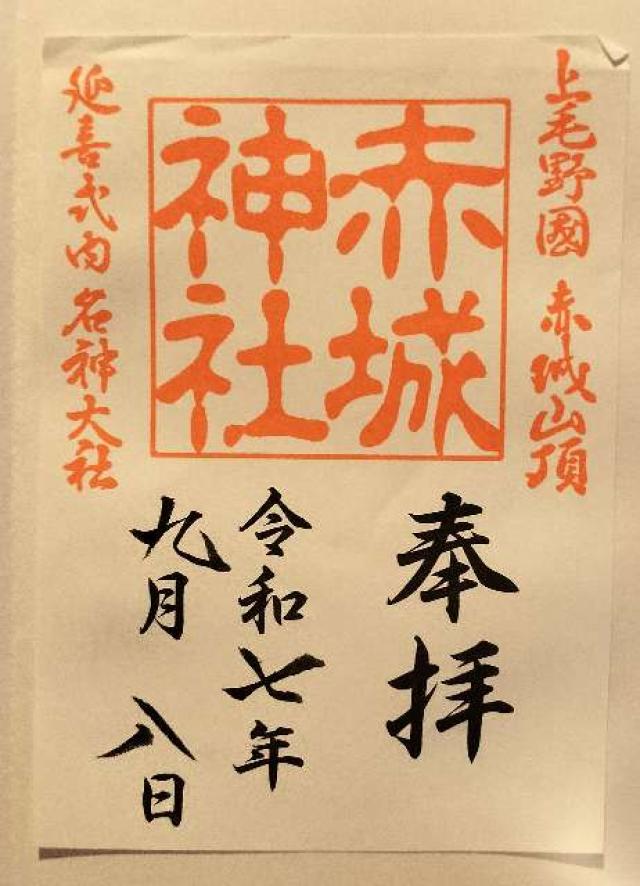 上毛野國 赤城山頂
赤城
神社
延喜式内名神大社
奉拝
令和七年
九月 八日